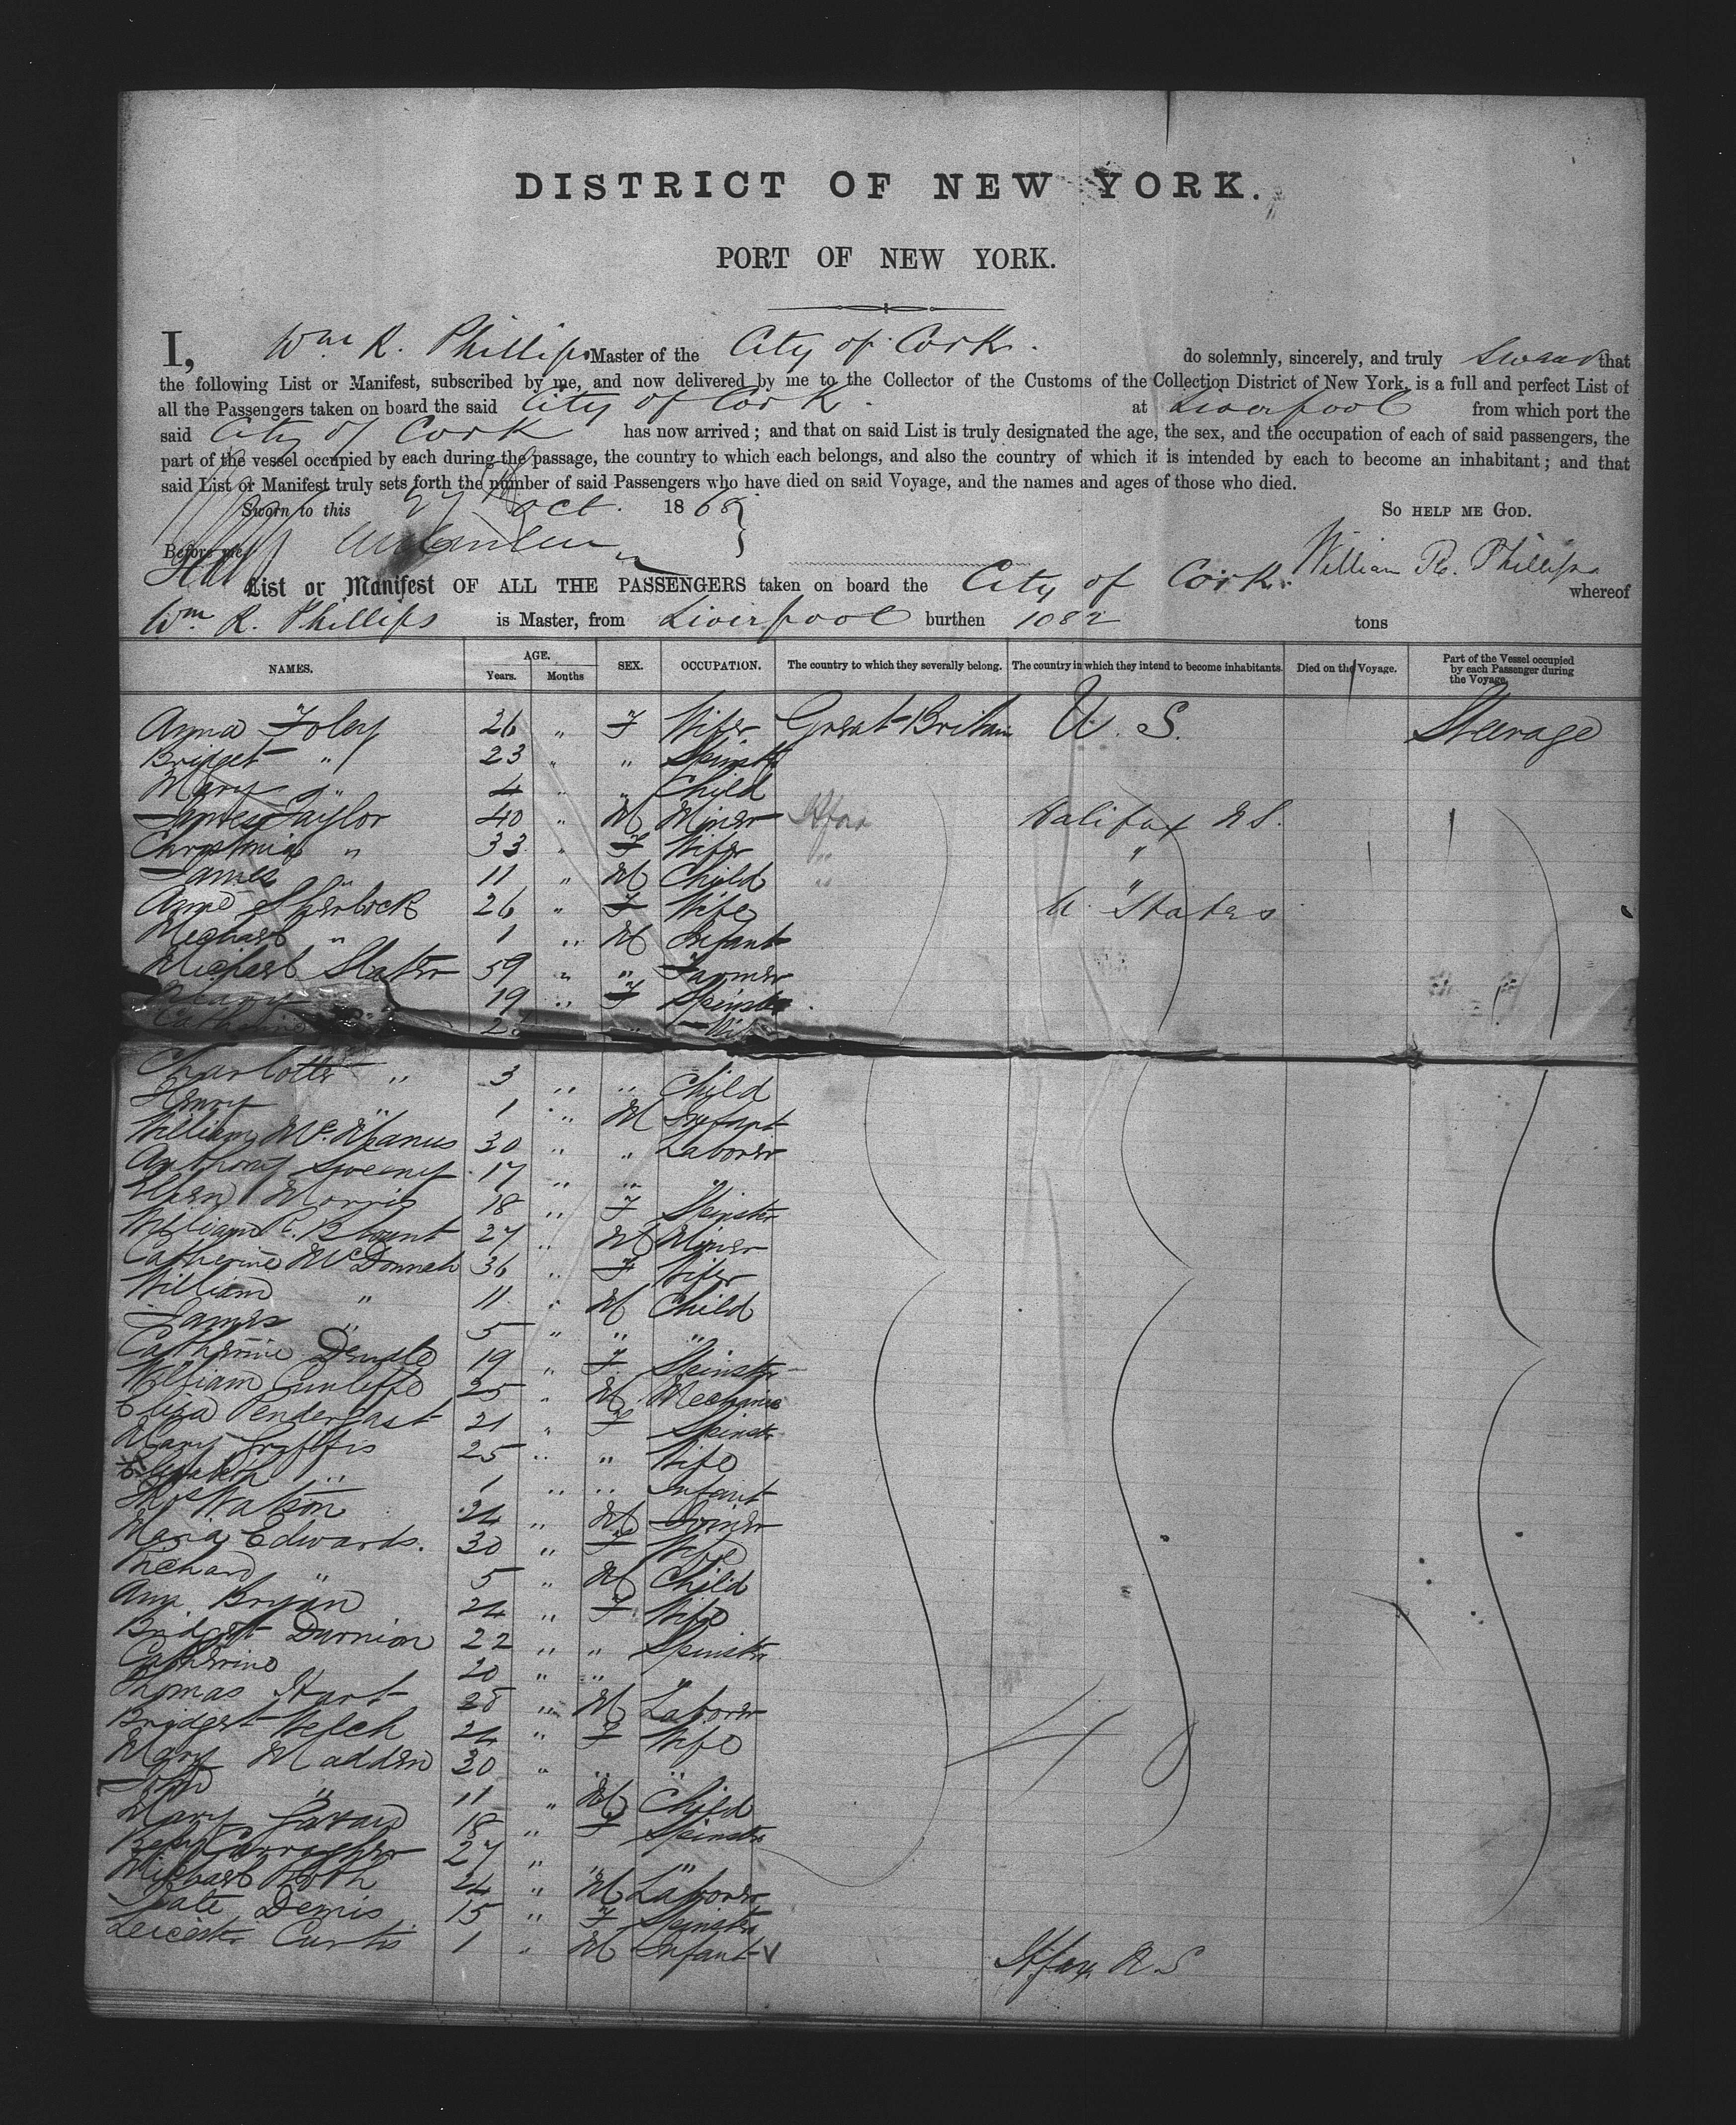 DISTRICT OF NEW YORK.
PORT OF NEW YORK.
I, Wm R. Phillips Master of the City of Cork. do solemnly, sincerely, and truly Swear that
the following List or Manifest, subscribed by me, and now delivered by me to the Collector of the Customs of the Collection District of New York, is a full and perfect List of
all the Passengers taken on board the said City of Cork. at Liverpool from which port the
said City of Cork has now arrived; and that on said List is truly designated the age, the sex, and the occupation of each of said passengers, the
part of the vessel occupied by each during the passage, the country to which each belongs, and also the country of which it is intended by each to become an inhabitant; and that
said List or Manifest truly sets forth the number of said Passengers who have died on said Voyage, and the names and ages of those who died.
Sworn to this 27 Oct. 1868 So help me God.
Before me,
William R. Phillips
List or Manifest OF ALL THE PASSENGERS taken on board the City of Cork. whereof
Wm R. Phillips is Master, from Liverpool burthen 1082 tons
NAMES. AGE. Years. Months SEX. OCCUPATION. The country to which they severally belong. The country in which they intend to become inhabitants. Died on the Voyage. Part of the Vessel occupied by each Passenger during the Voyage.
Anna Foley 26 " F Wife Great Britain U. S. Steerage
Bridget " 23 " " Spinster
Mary " 4 " " Child
James Taylor 40 " M Miner Halifax N S.
" 33 " F Wife " "
James " 11 " M Child " "
Anne Sherlock 26 " F Wife U. States
Michael " 1 " M Infant
Michael Slater 59 " " Farmer
Mary 19 " F Spinster
Catherine
Charlotte " 3 " " Child
Henry " 1 " M Infant
William McManus 30 " " Laborer
Anthony Sweeney 17 " " "
Ellen Morris 18 " F Spinster
William R. Blount 27 " M Miner
Catherine McDonnah 36 " F Wife
William " 11 " M Child
James " 5 " " "
Catherine 19 " F Spinster
William Cunliffe 25 " M Mechanic
Eliza Pendergast 21 " F Spinster
Mary Griffis 25 " " Wife
Elizabeth " 1 " " Infant
Thos Watson 24 " M
Maria Edwards. 30 " F Wife
Richard " 5 " M Child
Ann Bryan 24 " F Wife
Bridget Durnion 22 " " Spinster
Catherine 20 " " "
Thomas Hart 28 " M Laborer
Bridget Welch 24 " F Wife
Mary Madden 30 " " "
John " 11 " M Child
Mary 18 " F Spinster
27 " " "
Michael 24 " M Laborer
Kate Demis 15 " F Spinster
Leicester Curtis 1 " M Infant Hfax N S